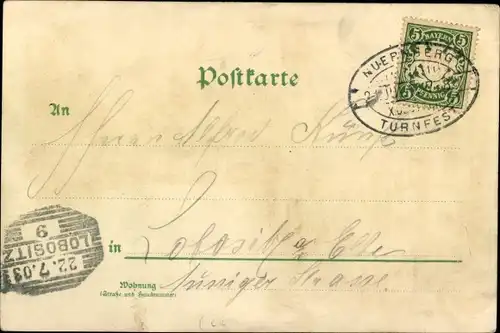 5 BAYERN 5
5 PFENNIG 5
NUERNBERG
TURNFEST
Postkarte
An
Herrn Alfred
in Lobositz a. Elbe
Wohnung
(Straße und Hausnummer)
LOBOSITZ
22.7.03
9